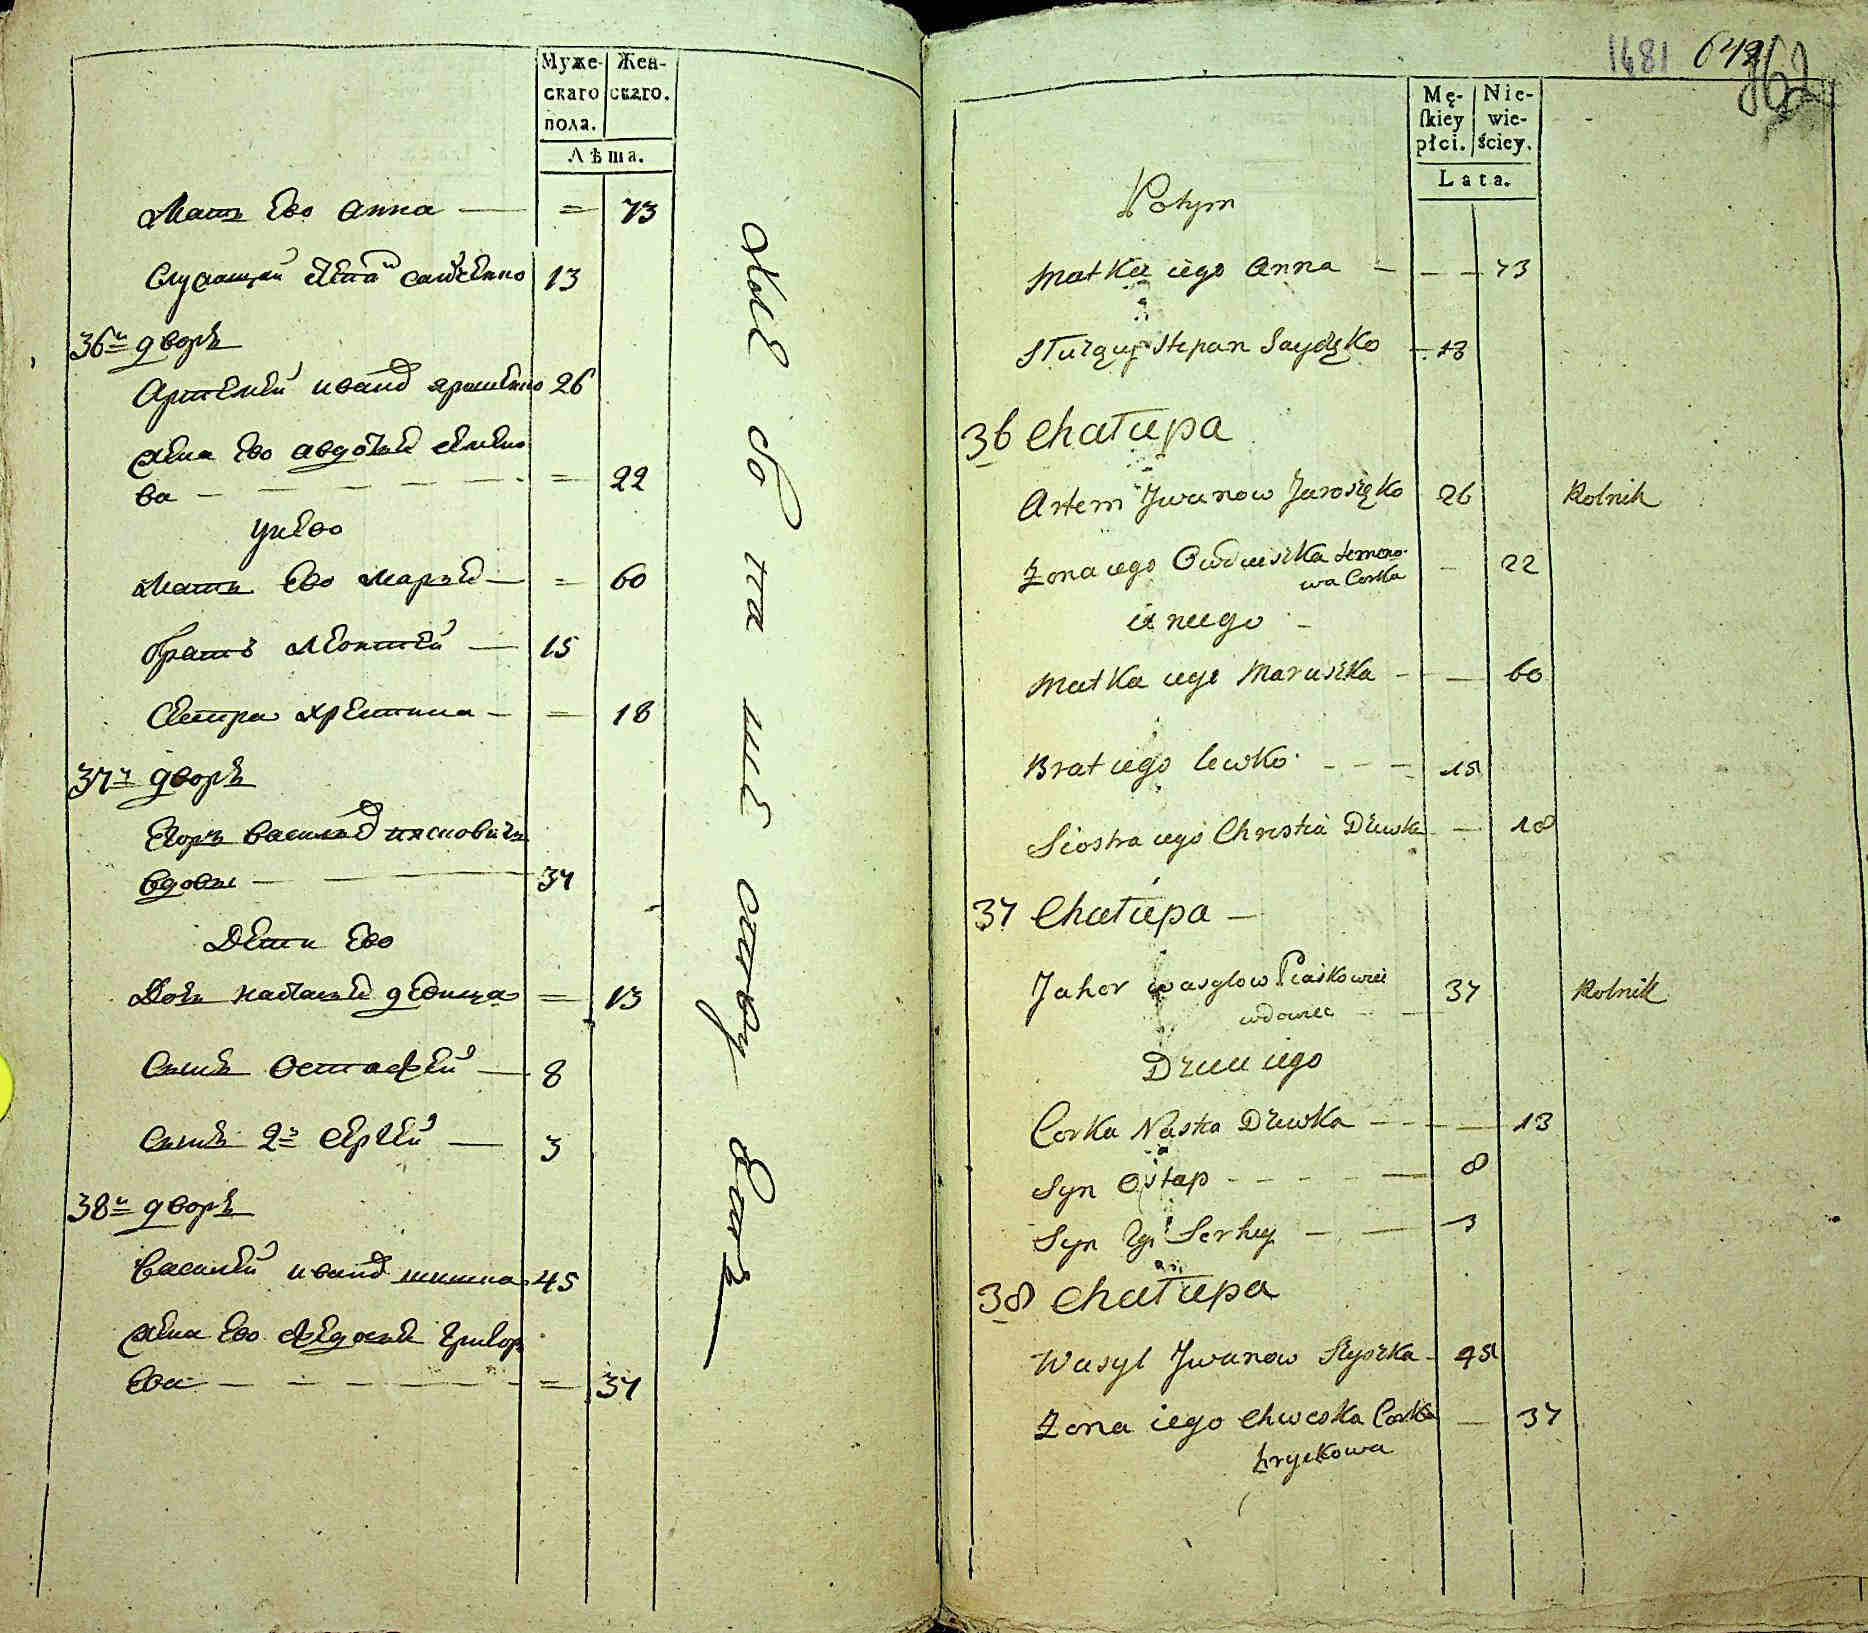 Муже- Жен-
скаго скаго.
пола.
Лѣта.
Мать Ево Анна — = 73
Служащей 13
36й дворъ
Артемей Иванов 26
Жена Ево Авдотья Семено
ва — = 22
у нево
Мать Ево Марья — = 60
братъ Леонтей — 15
Сестра Христина — = 18
37й дворъ
Егоръ Васильев Пясковичъ
вдовы — 37
Дети Ево
Дочь Настасья девица = 13
Сынъ Остафей — 8
Сынъ 2й Сергей — 3
38й дворъ
Василей Иванов шишка 45
Жена Ево Федосья Григорь
Ева — = 37
1481 649
862
Mę- Nie-
skiey wie-
płci. ściey.
Lata.
Potym
Matka iego Anna — 73
Słuząy Stepan Saydzko 13
36 Chałupa
Artem Jwanow Jaroszko 26 Rolnik
Żona iego Owdieszka Semeno-
wa Corka 22
u niego
Matka iego Maruszka — 60
Brat iego Lewko 15
Siostra iego Christia Dziewka — 18
37 Chałupa —
Jahor Wasylow Piaskowicz 37 Rolnik
wdowiec
Dzieci iego
Corka Nastia Dziewka — 13
Syn Ostap — 8
Syn 2gi Serhey — 3
38 Chałupa
Wasyl Jwanow Szyszka 45
Żona iego Chweska Corka — 37
Hryckowa